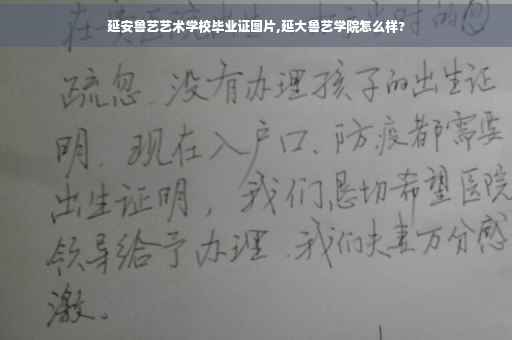 延安鲁艺艺术学校毕业证图片,延大鲁艺学院怎么样?
疏忽、没有办理孩子的出生证
明、现在入户口、防疫都需要
出生证明，我们恳切希望医院
领导给予办理、我们夫妻万分感
激。